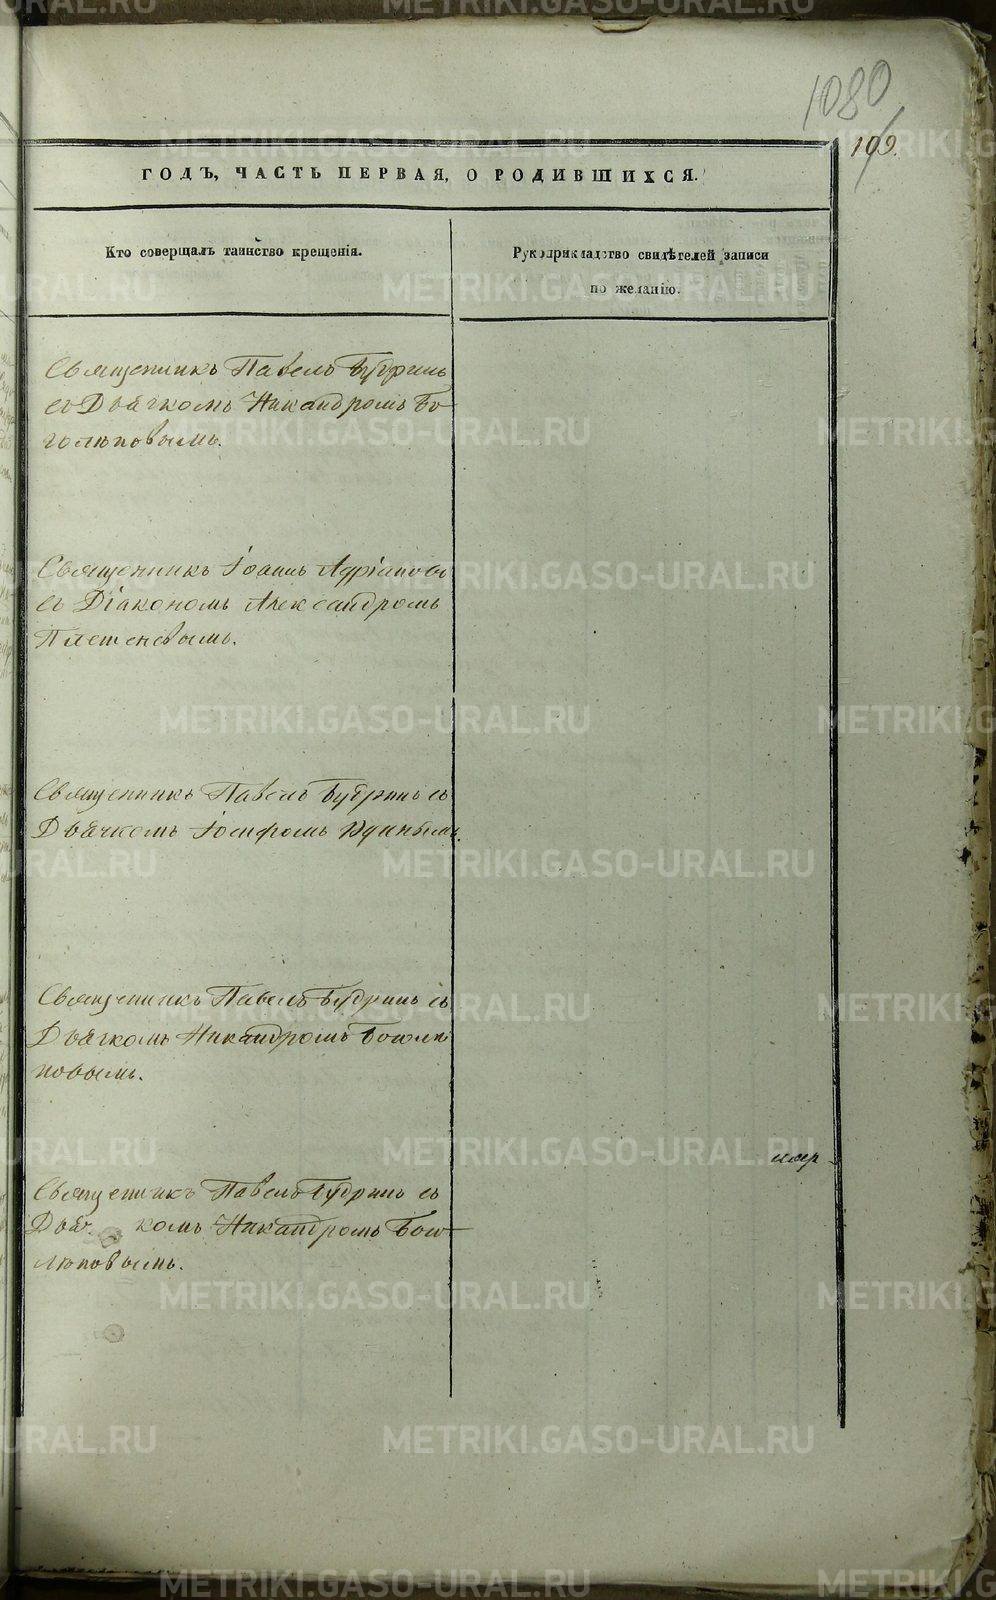 1080
109.
ГОДЪ, ЧАСТЬ ПЕРВАЯ, О РОДИВШИХСЯ.
Кто совершалъ таинство крещенія.
Рукоприкладство свидѣтелей записи
по желанію.
Священникъ Павелъ Будринъ
съ Дьячкомъ Никандромъ Бо-
голюповымъ.
Священникъ Іоаннъ Адріановъ
съ Діакономъ Александромъ
Плетеневымъ.
Священникъ Павелъ Будринъ съ
Дьячкомъ Іосифомъ
Священникъ Павелъ Будринъ съ
Дьячкомъ Никандромъ Боголю
повымъ.
умер
Священникъ Павелъ Будринъ съ
Дьячкомъ Никандромъ Бого-
люповымъ.
METRIKI.GASO-URAL.RU